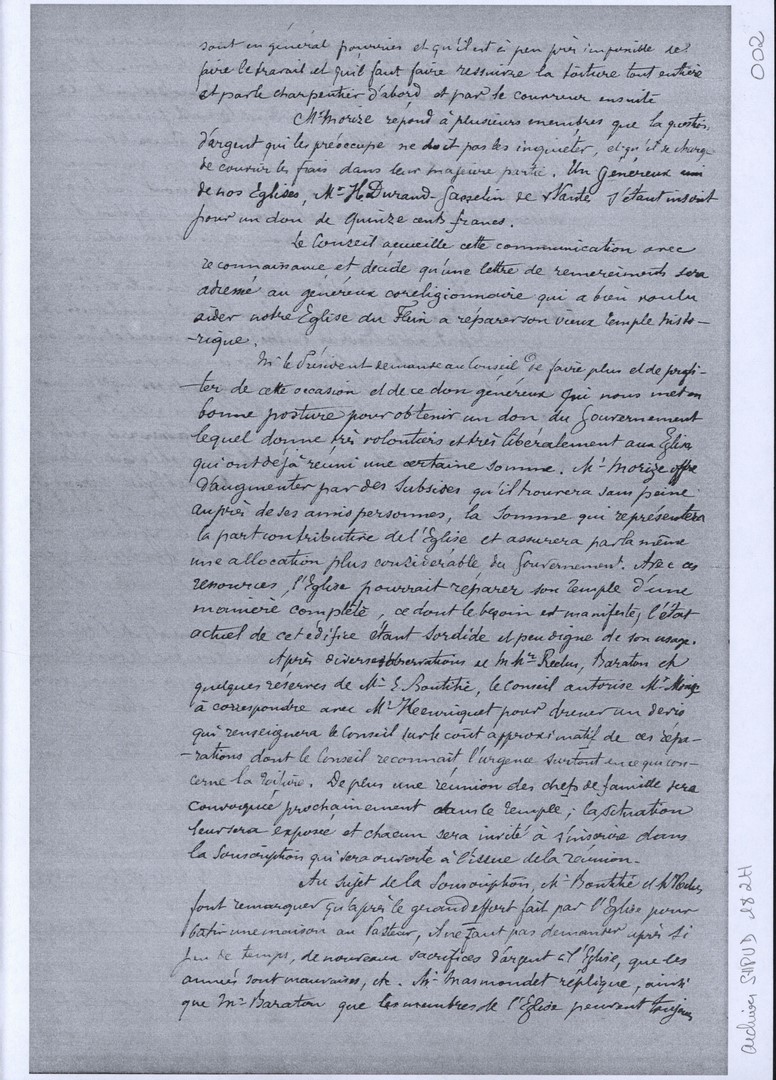 sont en général pourries et qu'il est à peu près impossible de
faire le travail et qu'il faut faire ressuivre la toiture tout entière
et par le charpentier d'abord et par le couvreur ensuite
Mr Morize répond à plusieurs membres que la question
d'argent qui les préoccupe ne doit pas les inquiéter, et qu'il se charge
de couvrir les frais dans leur majeure partie. Un Généreux ami
de nos Eglises, Mr H. Durand-Gasselin de Nante s'étant inscrit
pour un don de quinze cents francs.
Le Conseil accueille cette communication avec
reconnaissance et décide qu'une lettre de remerciments sera
adressé au généreux coreligionnaire qui a bien voulu
aider notre Eglise du à réparer son vieux temple histo-
-rique.
Mr le Président demande au Conseil de faire plus et de profi-
-ter de cette occasion et de ce don généreux qui nous met en
bonne posture pour obtenir un don du Gouvernement
lequel donne très volontiers et très libéralement aux Eglises
qui ont déjà réuni une certaine somme. Mr Morize offre
d'augmenter par des subsides qu'il trouvera sans peine
auprès de ses amis personnes, la somme qui représentera
la part contributive de l'Eglise et assurera par la même
une allocation plus considérable du Gouvernement. Avec ces
ressources, l'Eglise pourrait réparer son Temple d'une
manière complète, ce dont le besoin est manifeste, l'état
actuel de cet édifice étant sordide et peu digne de son usage.
Après diverses observations de M Mrs Reclus, Baraton et
quelques réserves de Mr E Bontitié, le Conseil autorise Mr Morize
à correspondre avec Mr Henriquet pour dresser un devis
qui renseignera le Conseil sur le coût approximatif de ces répa-
-rations dont le Conseil reconnait l'urgence surtout en ce qui con-
cerne la toiture. De plus une réunion des chefs de famille sera
convoquée prochainement dans le Temple; la situation
leur sera exposée et chacun sera invité à s'inscrire dans
la souscription qui sera ouverte à l'issue de la réunion.
Au sujet de la Souscription, Mr Bontitié et Mr Reclus
font remarquer qu'après le grand effort fait par l'Eglise pour
batir une maison au Pasteur, il ne faut pas demander après si
peu de temps, de nouveaux sacrifices d'argent à l'Eglise, que les
années sont mauvaises, etc. Mr Marmondet réplique, ainsi
que Mr Baraton que les membres de l'Eglise peuvent toujours
002
archives SHPUD 182H